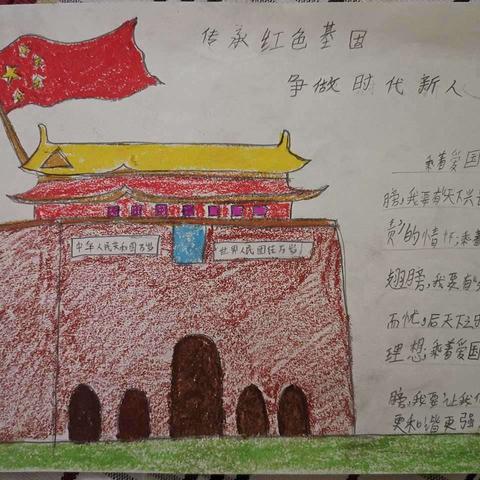 传承红色基因
争做时代新人
中华人民共和国万岁
世界人民团结万岁
乘着爱国
膀,我要有天下兴
彭的情怀;乘着
翅膀,我要有
而忧,后天下之
理想;乘着爱国
膀,我要让我们
更和谐更强